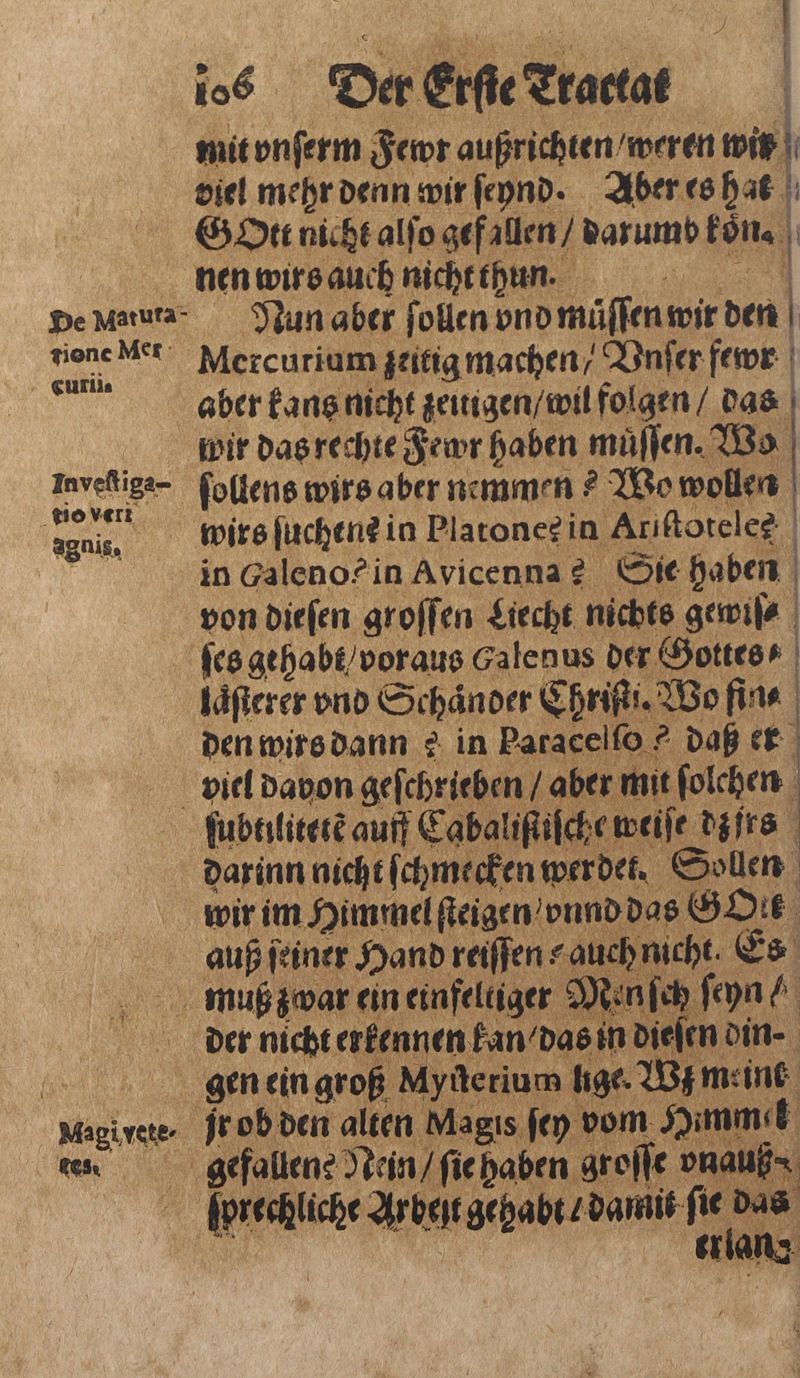 106 Der Erſte Tractat
mit vnſerm Fewr außrichten/weren wir
viel mehr denn wir ſeynd. Aber es hat
GOtt nicht alſo gefallen/ darumb koͤn-
nen wirs auch nicht thun.
De Matura-
tione Mer
curii.
Nun aber ſollen vnd muͤſſen wir den
Mercurium zeitig machen/ Vnſer fewr
aber kans nicht zeitigen/wil folgen/ das
wir das rechte Fewr haben muͤſſen. Wo
Inveſtiga-
tio veri
agnis.
ſollens wirs aber nemmen? Wo wollen
wirs ſuchen? in Platone? in Ariſtotele?
in Galeno? in Avicenna? Sie haben
von dieſen groſſen Liecht nichts gewiſ-
ſes gehabt/voraus Galenus der Gottes-
laͤſterer vnd Schaͤnder Chriſti. Wo fin-
den wirs dann? in Paracelſo? daß er
viel davon geſchrieben/ aber mit ſolchen
ſubtilitetẽ auff Cabaliſtiſche weiſe dz jrs
darinn nicht ſchmecken werdet. Sollen
wir im Himmel ſteigen/vnnd das GOtt
auß ſeiner Hand reiſſen? auch nicht. Es
muß zwar ein einfeltiger Menſch ſeyn/
der nicht erkennen kan/das in dieſen din-
gen ein groß Myſterium lige. Wz meint
Magi vete-
res.
jr ob den alten Magis ſey vom Himmel
gefallen? Nein/ ſie haben groſſe vnauß-
ſprechliche Arbeit gehabt/damit ſie das
erlan-